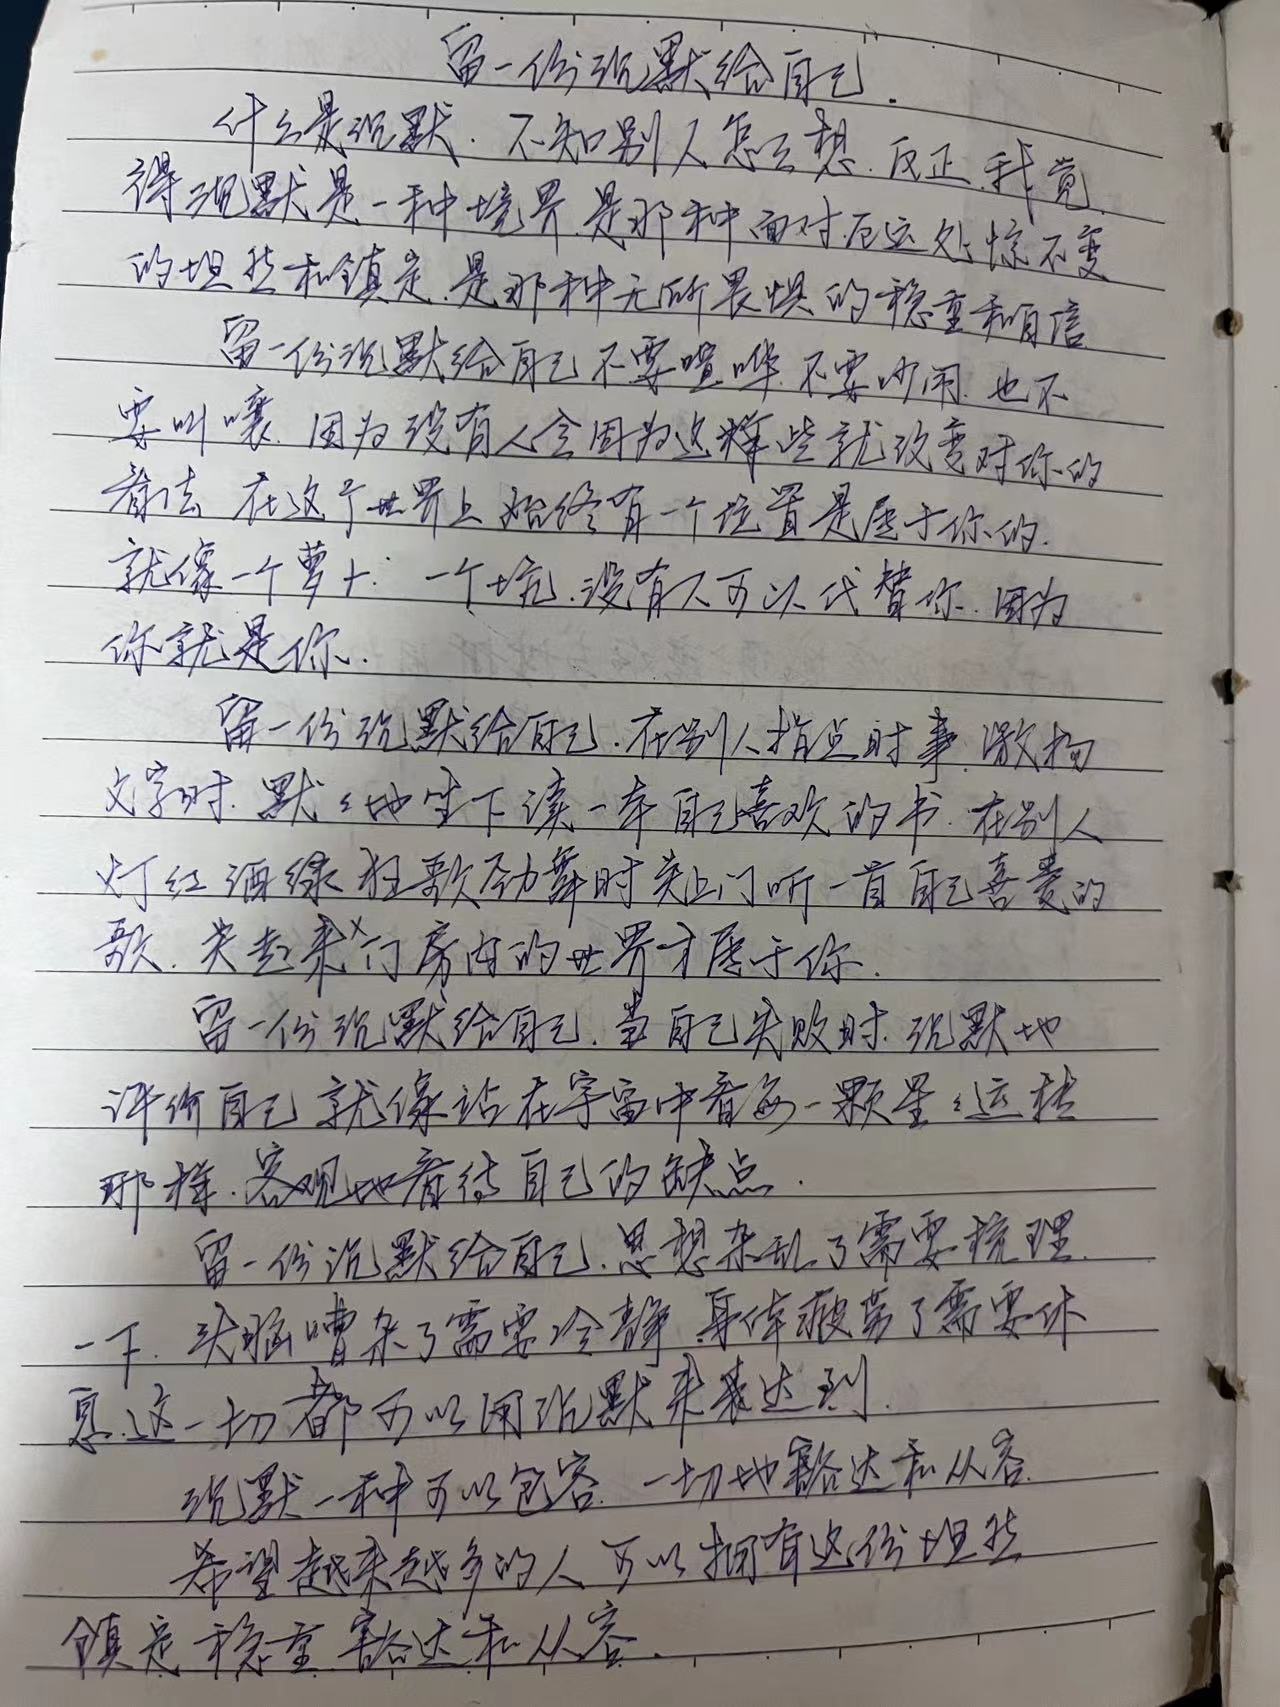 留一份沉默给自己.
什么是沉默.不知别人怎么想.反正.我觉
得沉默是一种境界.是那种面对厄运处惊不变
的坦然和镇定.是那种无所畏惧的稳重和自信
留一份沉默给自己不要喧哗.不要吵闹.也不
要叫嚷.因为没有人会因为这样些就改变对你的
看法 在这个世界上始终有一个位置是属于你的.
就像一个萝卜.一个坑.没有人可以代替你.因为
你就是你.
留一份沉默给自己.在别人指点时事.激扬
文字时.默々地坐下读一本自己喜欢的书.在别人
灯红酒绿狂歌劲舞时关上门听一首自己喜爱的
歌.关起来门房内的世界才属于你.
留一份沉默给自己.当自己失败时.沉默地
评价自己就像站在宇宙中看每一颗星々运转
那样.客观地看待自己的缺点.
留一份沉默给自己.思想杂乱了需要梳理
一下.头脑嘈杂了需要冷静.身体疲劳了需要休
息.这一切都可以用沉默来表达到.
沉默一种可以包容.一切地豁达和从容.
希望越来越多的人可以拥有这份坦然
镇定稳重.豁达和从容.